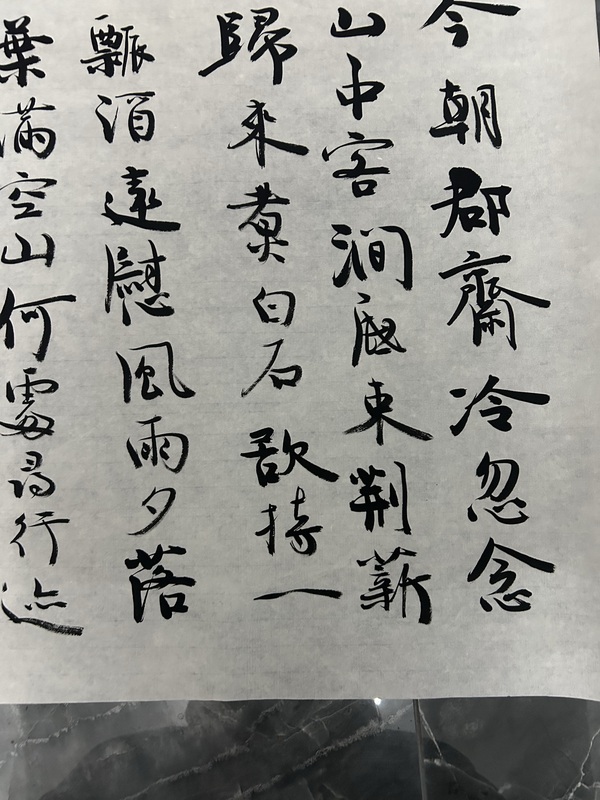 今朝郡齋冷忽念
山中客澗底束荊薪
歸來煮白石欲持一
瓢酒遠慰風雨夕落
葉滿空山何處尋行迹